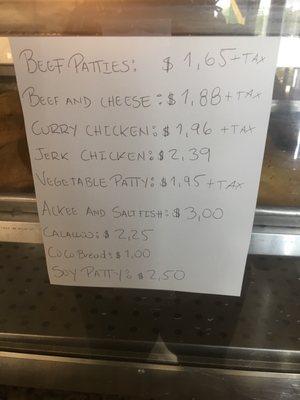 BEEF PATTIES: $ 1,65 + TAX
BEEF AND CHEESE: $ 1,88 + TAX
CURRY CHICKEN: $ 1,96 + TAX
JERK CHICKEN: $ 2,39
VEGETABLE PATTY: $ 1,95 + TAX
ACKEE AND SALTFISH: $ 3,00
CALALOO: $ 2,25
COCO Bread: $ 1,00
SOY PATTY: $ 2,50